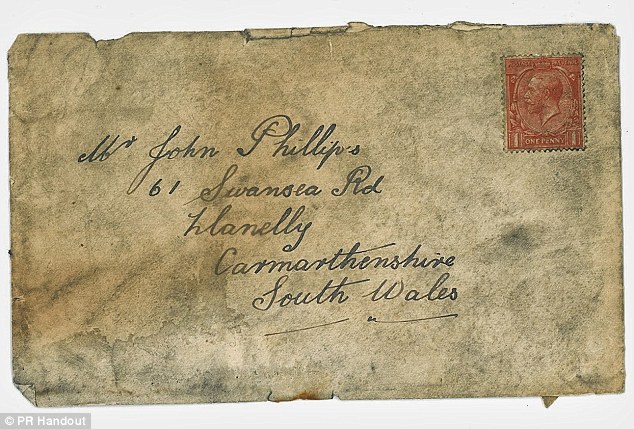 Mr John Phillips
61 Swansea Rd
Llanelly
Carmarthenshire
South Wales
1 ONE PENNY 1
© PR Handout